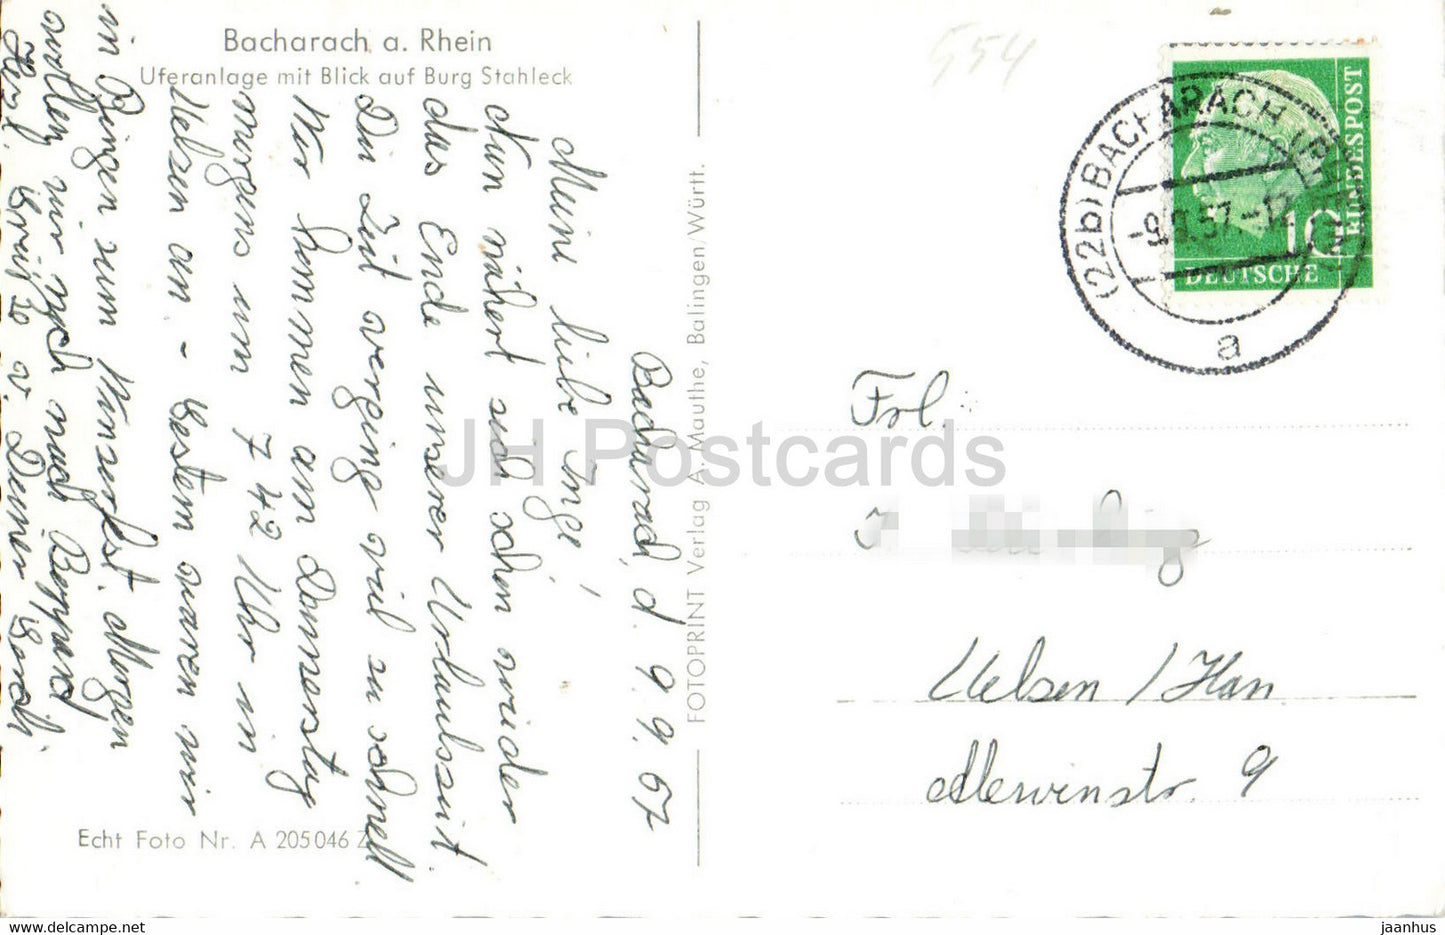 Bacharach a. Rhein
Uferanlage mit Blick auf Burg Stahleck
Bacharach, d. 9.9.57
Meine liebe Inge!
Nun nähert sich schon wieder
das Ende unserer Urlaubszeit.
Die Zeit verging viel zu schnell
Wir kommen am Donnerstag
morgens um 7 42 Uhr in
Uelzen an. - Gestern waren wir
in Bingen zum Winzerfest. Morgen
wollen wir noch nach Boppard
Herzl. Grüße v. Deiner
Echt Foto Nr. A 205046 Z
FOTOPRINT Verlag A. Mauthe, Balingen/Württ.
554
(22b) BACHARACH (RHEIN)
-9.9.57.-12
a
DEUTSCHE
BUNDESPOST
10
Frl.
Uelzen / Han
str. 9
JH Postcards
www.delcampe.net
jaanhus